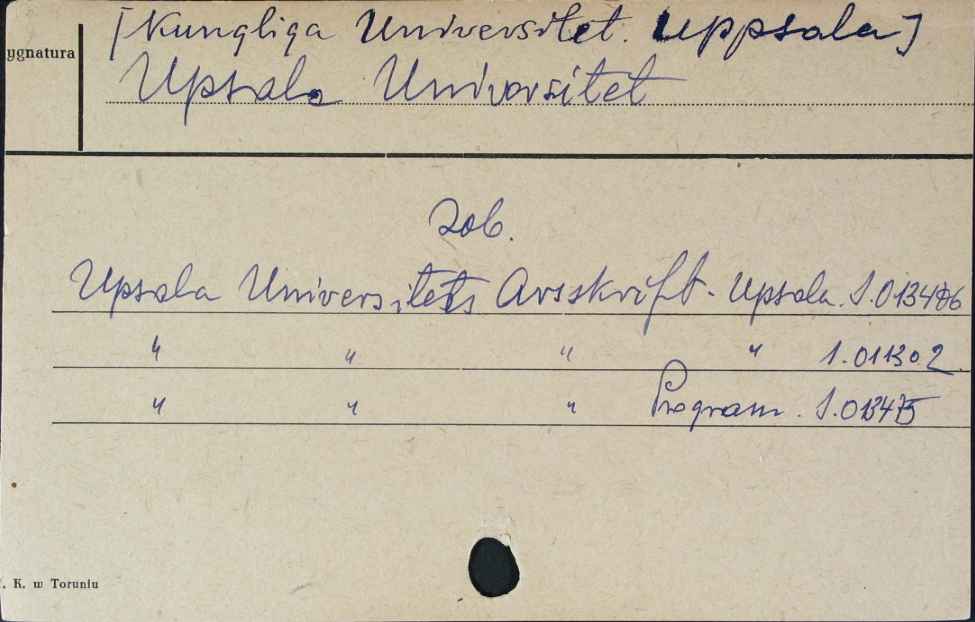 [Kungliga Universitet. Uppsala]
ygnatura
Upsala Universitet
zob.
Upsala Universitets Arsskrift. Upsala. S.013476
" " " " S.011302
" " " Program. S.013475
. K. w Toruniu